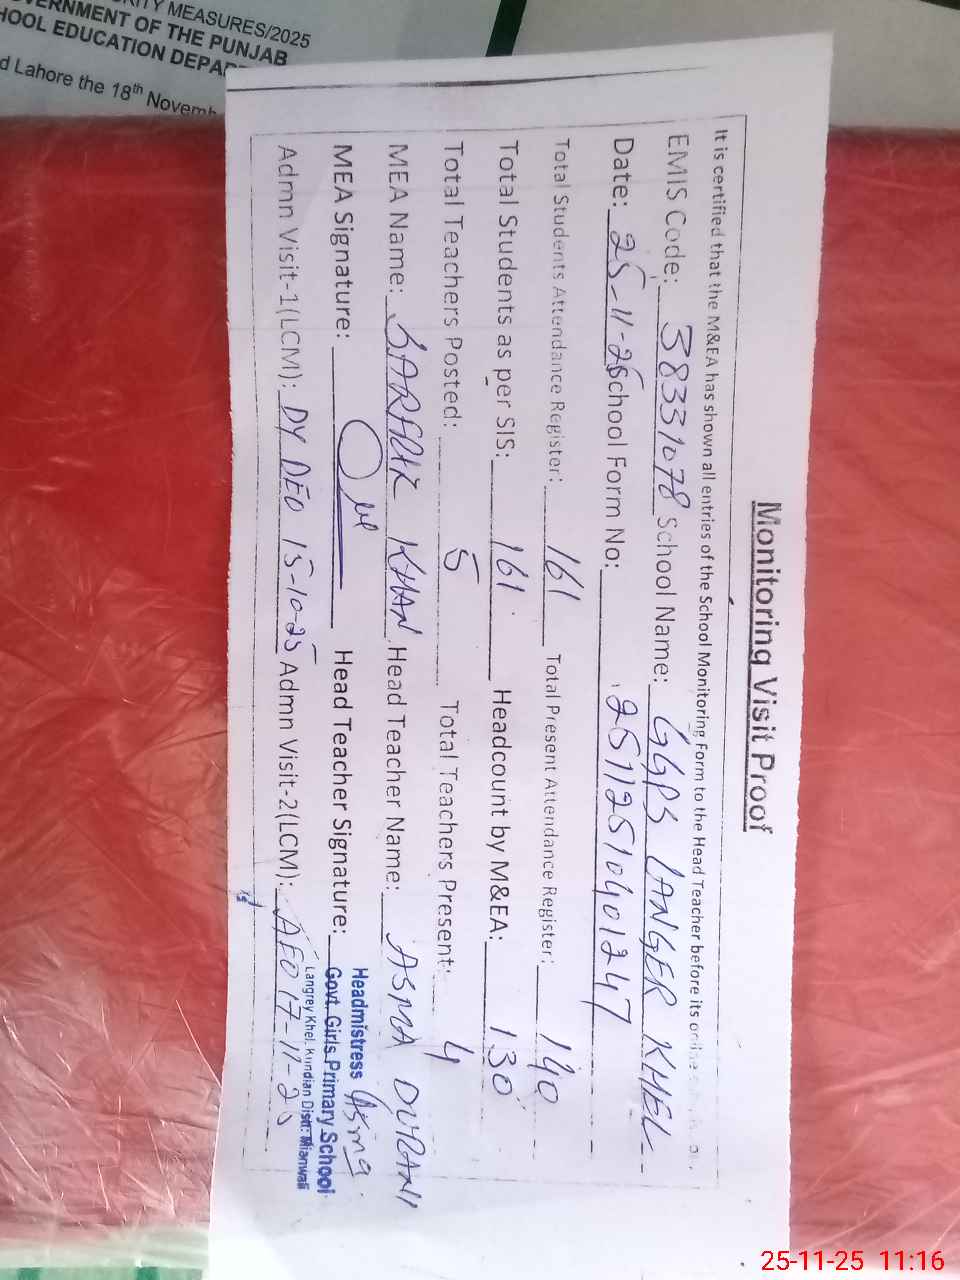 RITY MEASURES/2025
VERNMENT OF THE PUNJAB
HOOL EDUCATION DEPAR
d Lahore the 18th Novemb
Monitoring Visit Proof
It is certified that the M&EA has shown all entries of the School Monitoring Form to the Head Teacher before its
EMIS Code: 38331078 School Name: GGPS LANGER KHEL
Date: 25-11-25 School Form No: 25112510401247
Total Students Attendance Register: 161 Total Present Attendance Register: 140
Total Students as per SIS: 161 Headcount by M&EA: 130
Total Teachers Posted: 5 Total Teachers Present: 4
MEA Name: KHAN Head Teacher Name: ASMA DURANI
MEA Signature: Head Teacher Signature: Asma
Headmistress
Govt. Girls Primary School
Langrey Khel. Kundian Distt: Mianwali
Admn Visit-1(LCM): DY DEO 15-10-25 Admn Visit-2(LCM): AEO 17-11-25
25-11-25 11:16